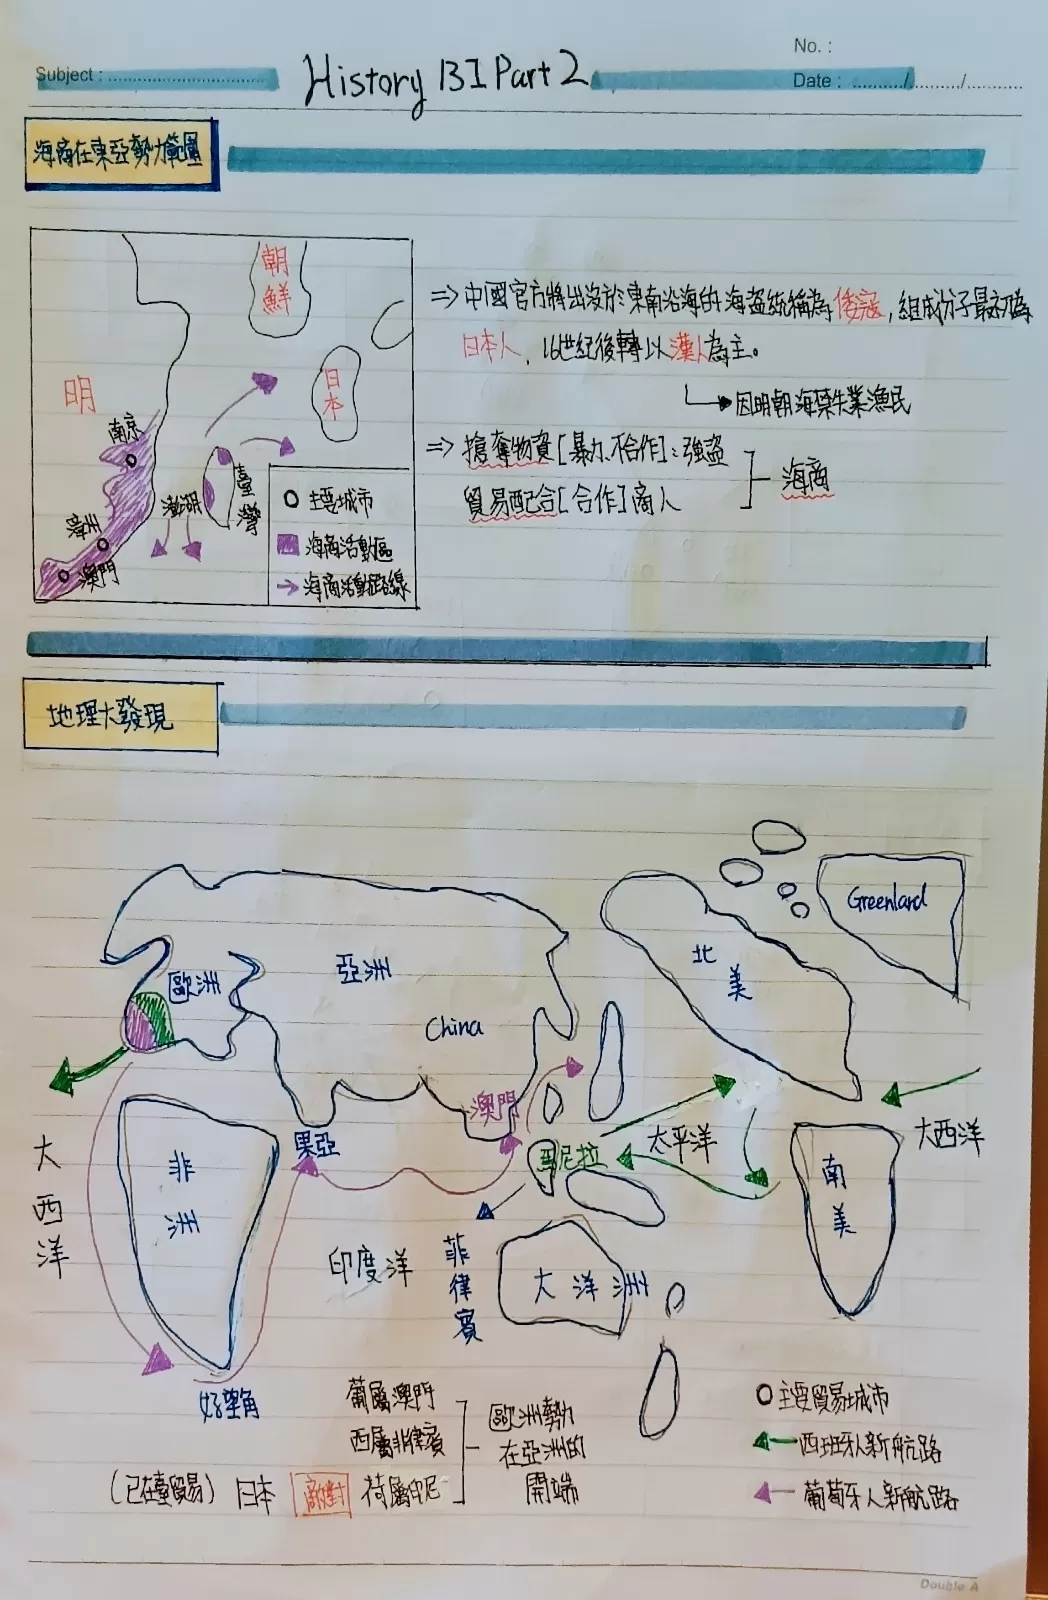 No. :
Subject :
History B1 Part 2
Date : / /
海商在東亞勢力範圍
朝
鮮
明
日
本
南京
漳州
澎湖
臺
灣
澳門
主要城市
海商活動區
海商活動路線
⇒ 中國官方將出沒於東南沿海的海盜統稱為倭寇，組成份子最初為
日本人，16世紀後轉以漢人為主。
因明朝海禁失業漁民
⇒ 搶奪物資[暴力、不合作]：強盜
貿易配合[合作]商人
海商
地理大發現
Greenland
北
美
歐洲
亞洲
China
澳門
果亞
馬尼拉
太平洋
大西洋
大
西
洋
非
洲
南
美
印度洋
菲
律
賓
大洋洲
好望角
葡屬澳門
西屬菲律賓
(已在臺貿易) 日本 敵對 荷屬印尼
歐洲勢力
在亞洲的
開端
主要貿易城市
西班牙人新航路
葡萄牙人新航路
Double A